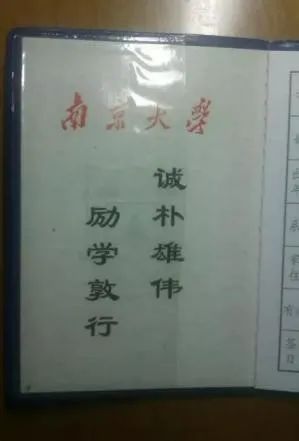 南京大学
诚朴雄伟
励学敦行